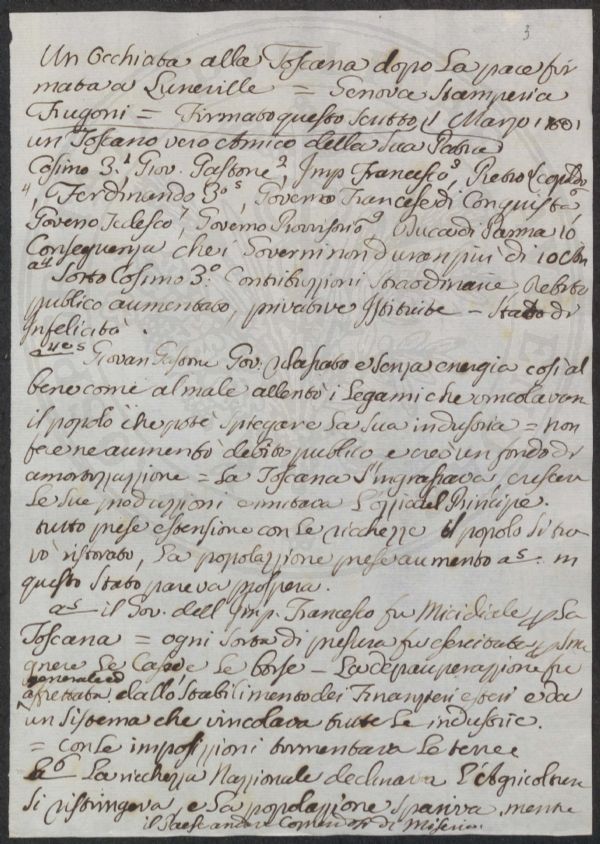 3
Un Occhiata alla Toscana dopo La pace fir
mata a Luneville = Genova Stamperia
Frugoni = Firmato questo scritto, 1 Marzo 1801
un Toscano vero Amico della Sua Patria
Cosimo 3.1 Giov. Gastone 2, Imp Francesco 3, Pietro Leopoldo
4, Ferdinando 3o 5, Governo Francese di Conquista
Governo Tedesco 7, Governo Provvisorio 9, Duca di Parma 10
Conseguenza che i Governi non duran piu di 10
Sotto Cosimo 3o Contribuzioni straordinarie Debito
pubblico aumentato, privative Istituite = Stato di
Infelicità.
Giovan Gastone Gov: rilasciato e senza energia così al
bene come al male allentò i Legami che vincolavan
il popolo che potè spiegare La sua industria = non
fece ne aumentò debito pubblico e creò un fondo di
amortizzazione = La Toscana s'ingrassava, crescean
Le sue produzioni e imitava L'ozio del Principe.
tutto prese estensione con Le ricchezze il popolo si tro
vò ristorato, La popolazione prese aumento in
questo Stato pareva prospera.
il Gov. dell Imp. Francesco fu Micidiale p La
Toscana = ogni Sorta di pressura fu esercitata p smu
gnere Le Case, e Le borse = La depauperazione fu
generale ed
affrettata dallo Stabilimento dei Finanzieri esteri e da
un Sistema che vincolava tutte Le industrie.
= con Le imposizioni tormentava Le terre
La ricchezza Nazionale declinava L'Agricoltura
Si ristringeva, e La popolazione spariva, mentre
il Paese andava coprendosi di Miseria.